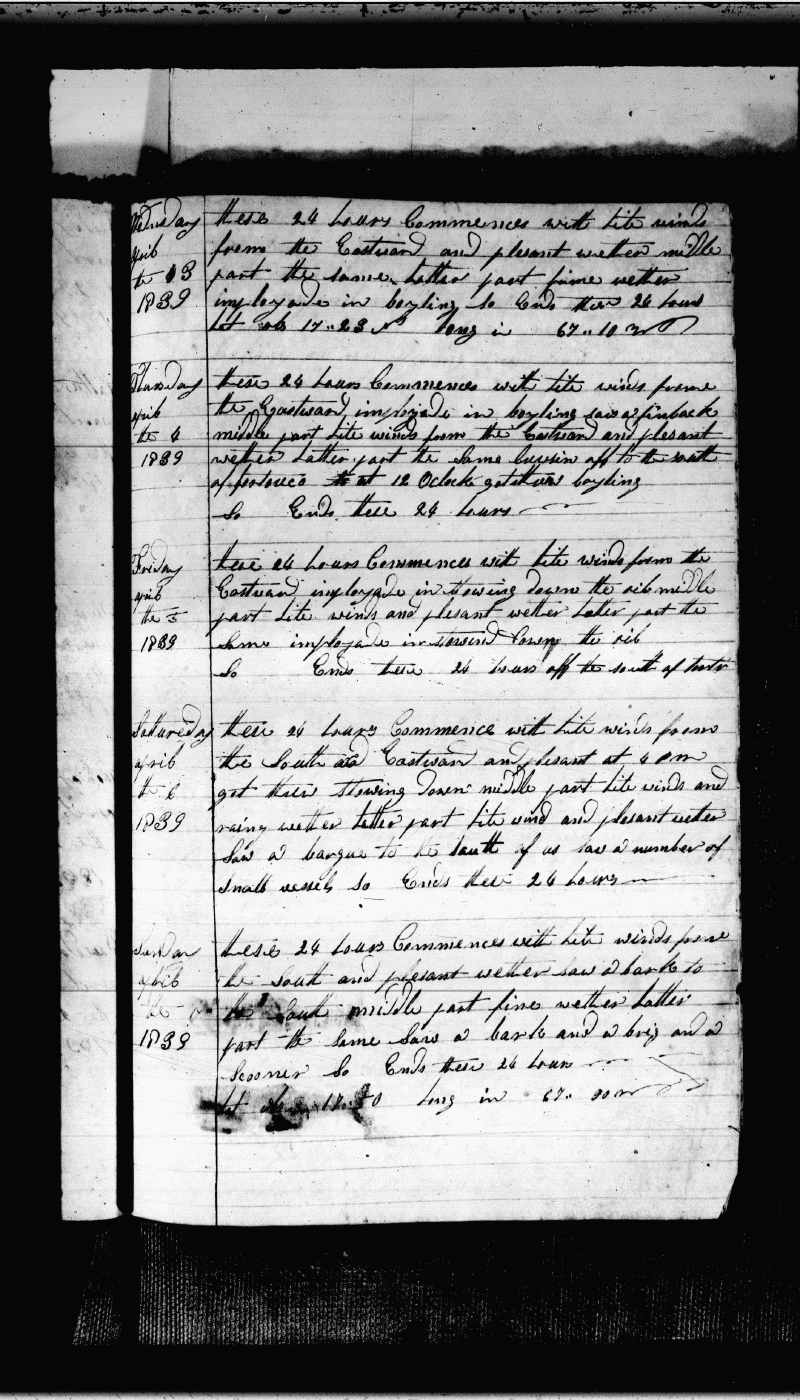 Wednsday these 24 hours Commences with lite winds
aprib from the Eastward and plesant wether middle
the 3 part the same latter part fine wether
1839 imployade in boyling So Ends these 24 hours
lat ob 17..23 N long in 67..10 
Thursday these 24 hours Commences with lite winds frome
aprib the Eastward imployade in boyling saw a finback
the 4 middle part lite winds from the Eastward and plesant
1839 wether latter part the same Crusin off to the south
of portorico at 12 Oclock got threw boyling
So Ends these 24 hours
Friday these 24 hours Commences with lite winds from the
aprib Eastward imployade in stowing down the oib middle
the 5 part lite winds and plesant wether latter part the
1839 same imployade in down the oib
So Ends these 24 hours off the south of
Sattureday these 24 hours Commence with lite winds from
aprib the South and Eastward and plesant at 4 pm
the 6 got threw stowing down middle part lite winds and
1839 rainy wether latter part lite wind and plesant wether
Saw a barque to the south of us saw a number of
small vessels So Ends these 24 hours
Sunday these 24 hours Commences with lite winds frome
aprib the South and plesant wether saw a bark to
the the South middle part fine wether latter
1839 part the same Saw a bark and a brig and a
Scooner So Ends these 24 hours
lat ob 17.. long in 67..